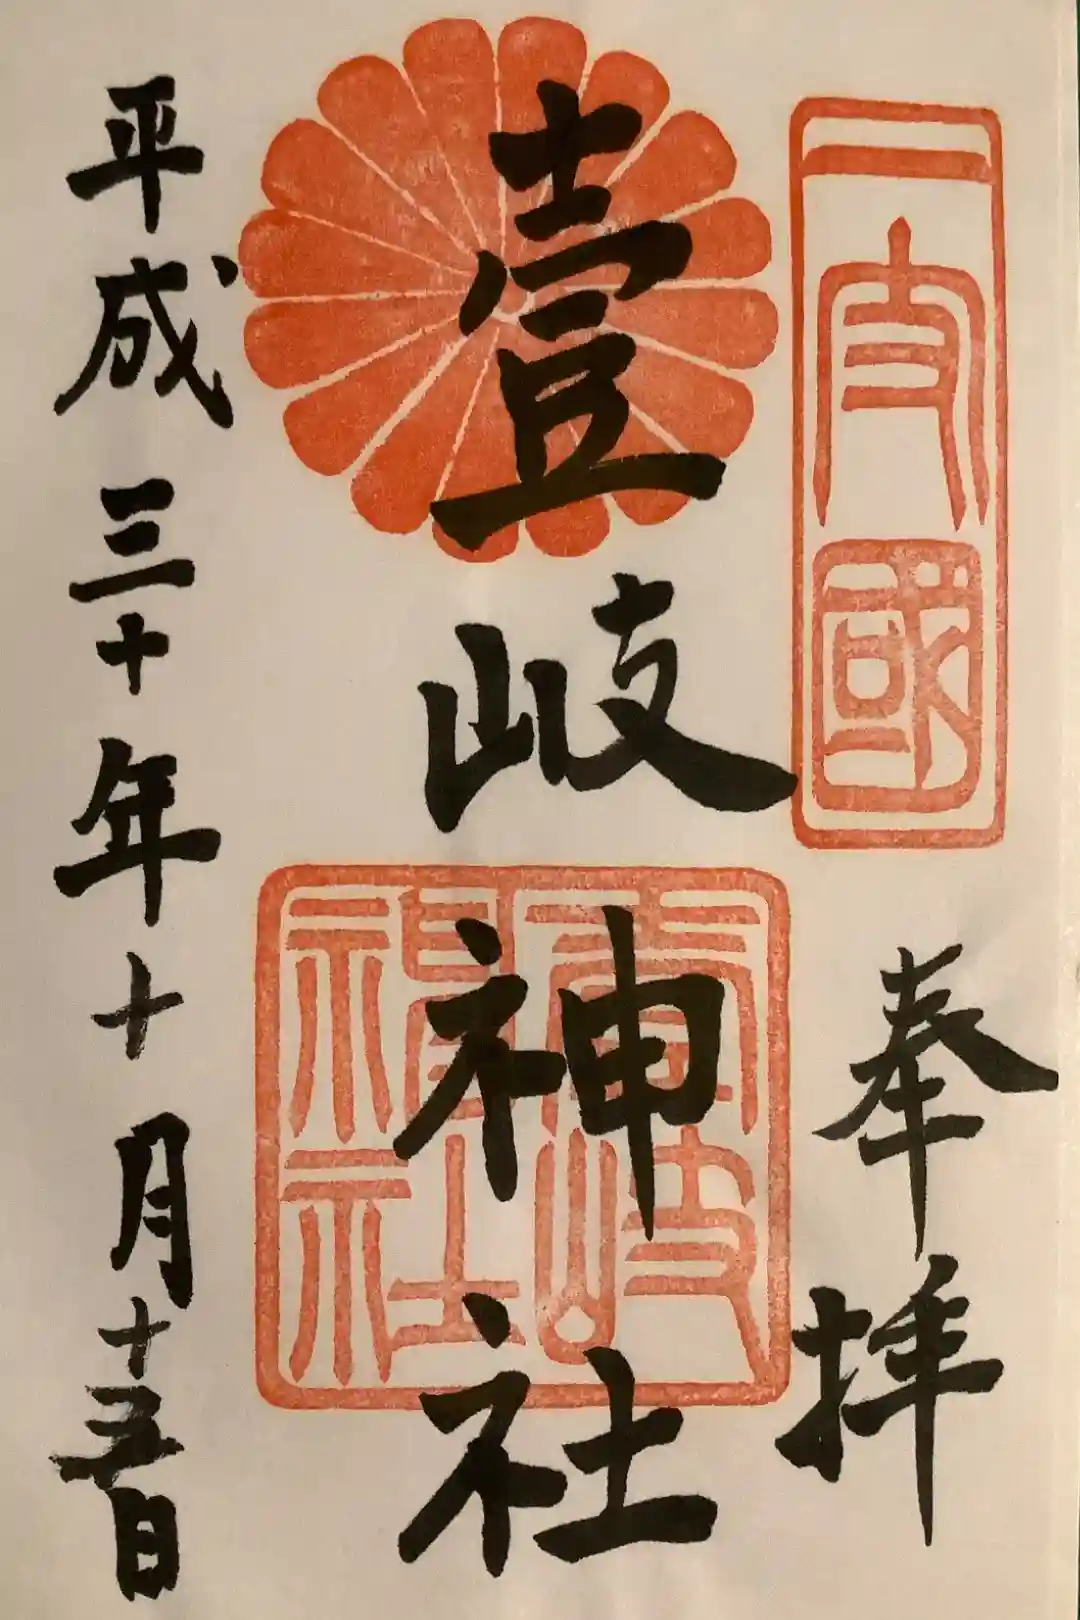 一支國
奉拝
壹岐神社
壹岐
神社
平成三十年十月十五日